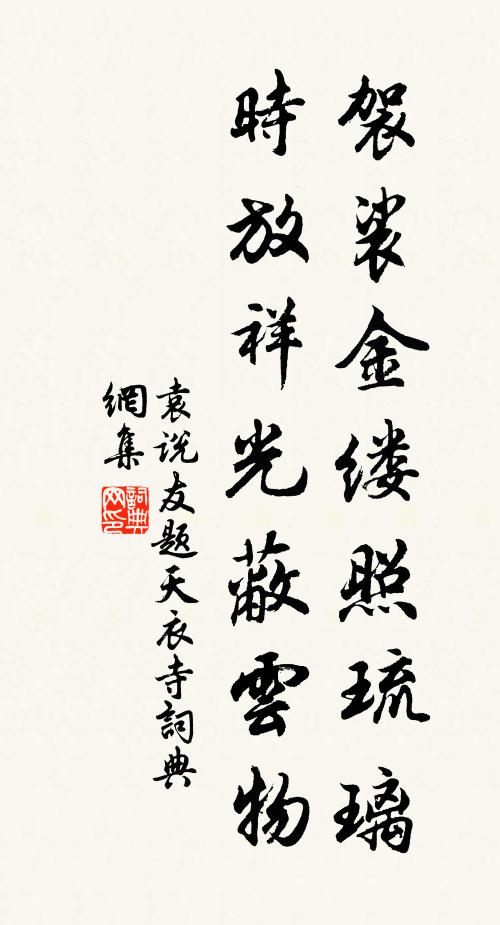 袈裟金缕照琉璃
時放祥光蔽雲物
袁说友题天衣寺詞典
網集
詞典
网印